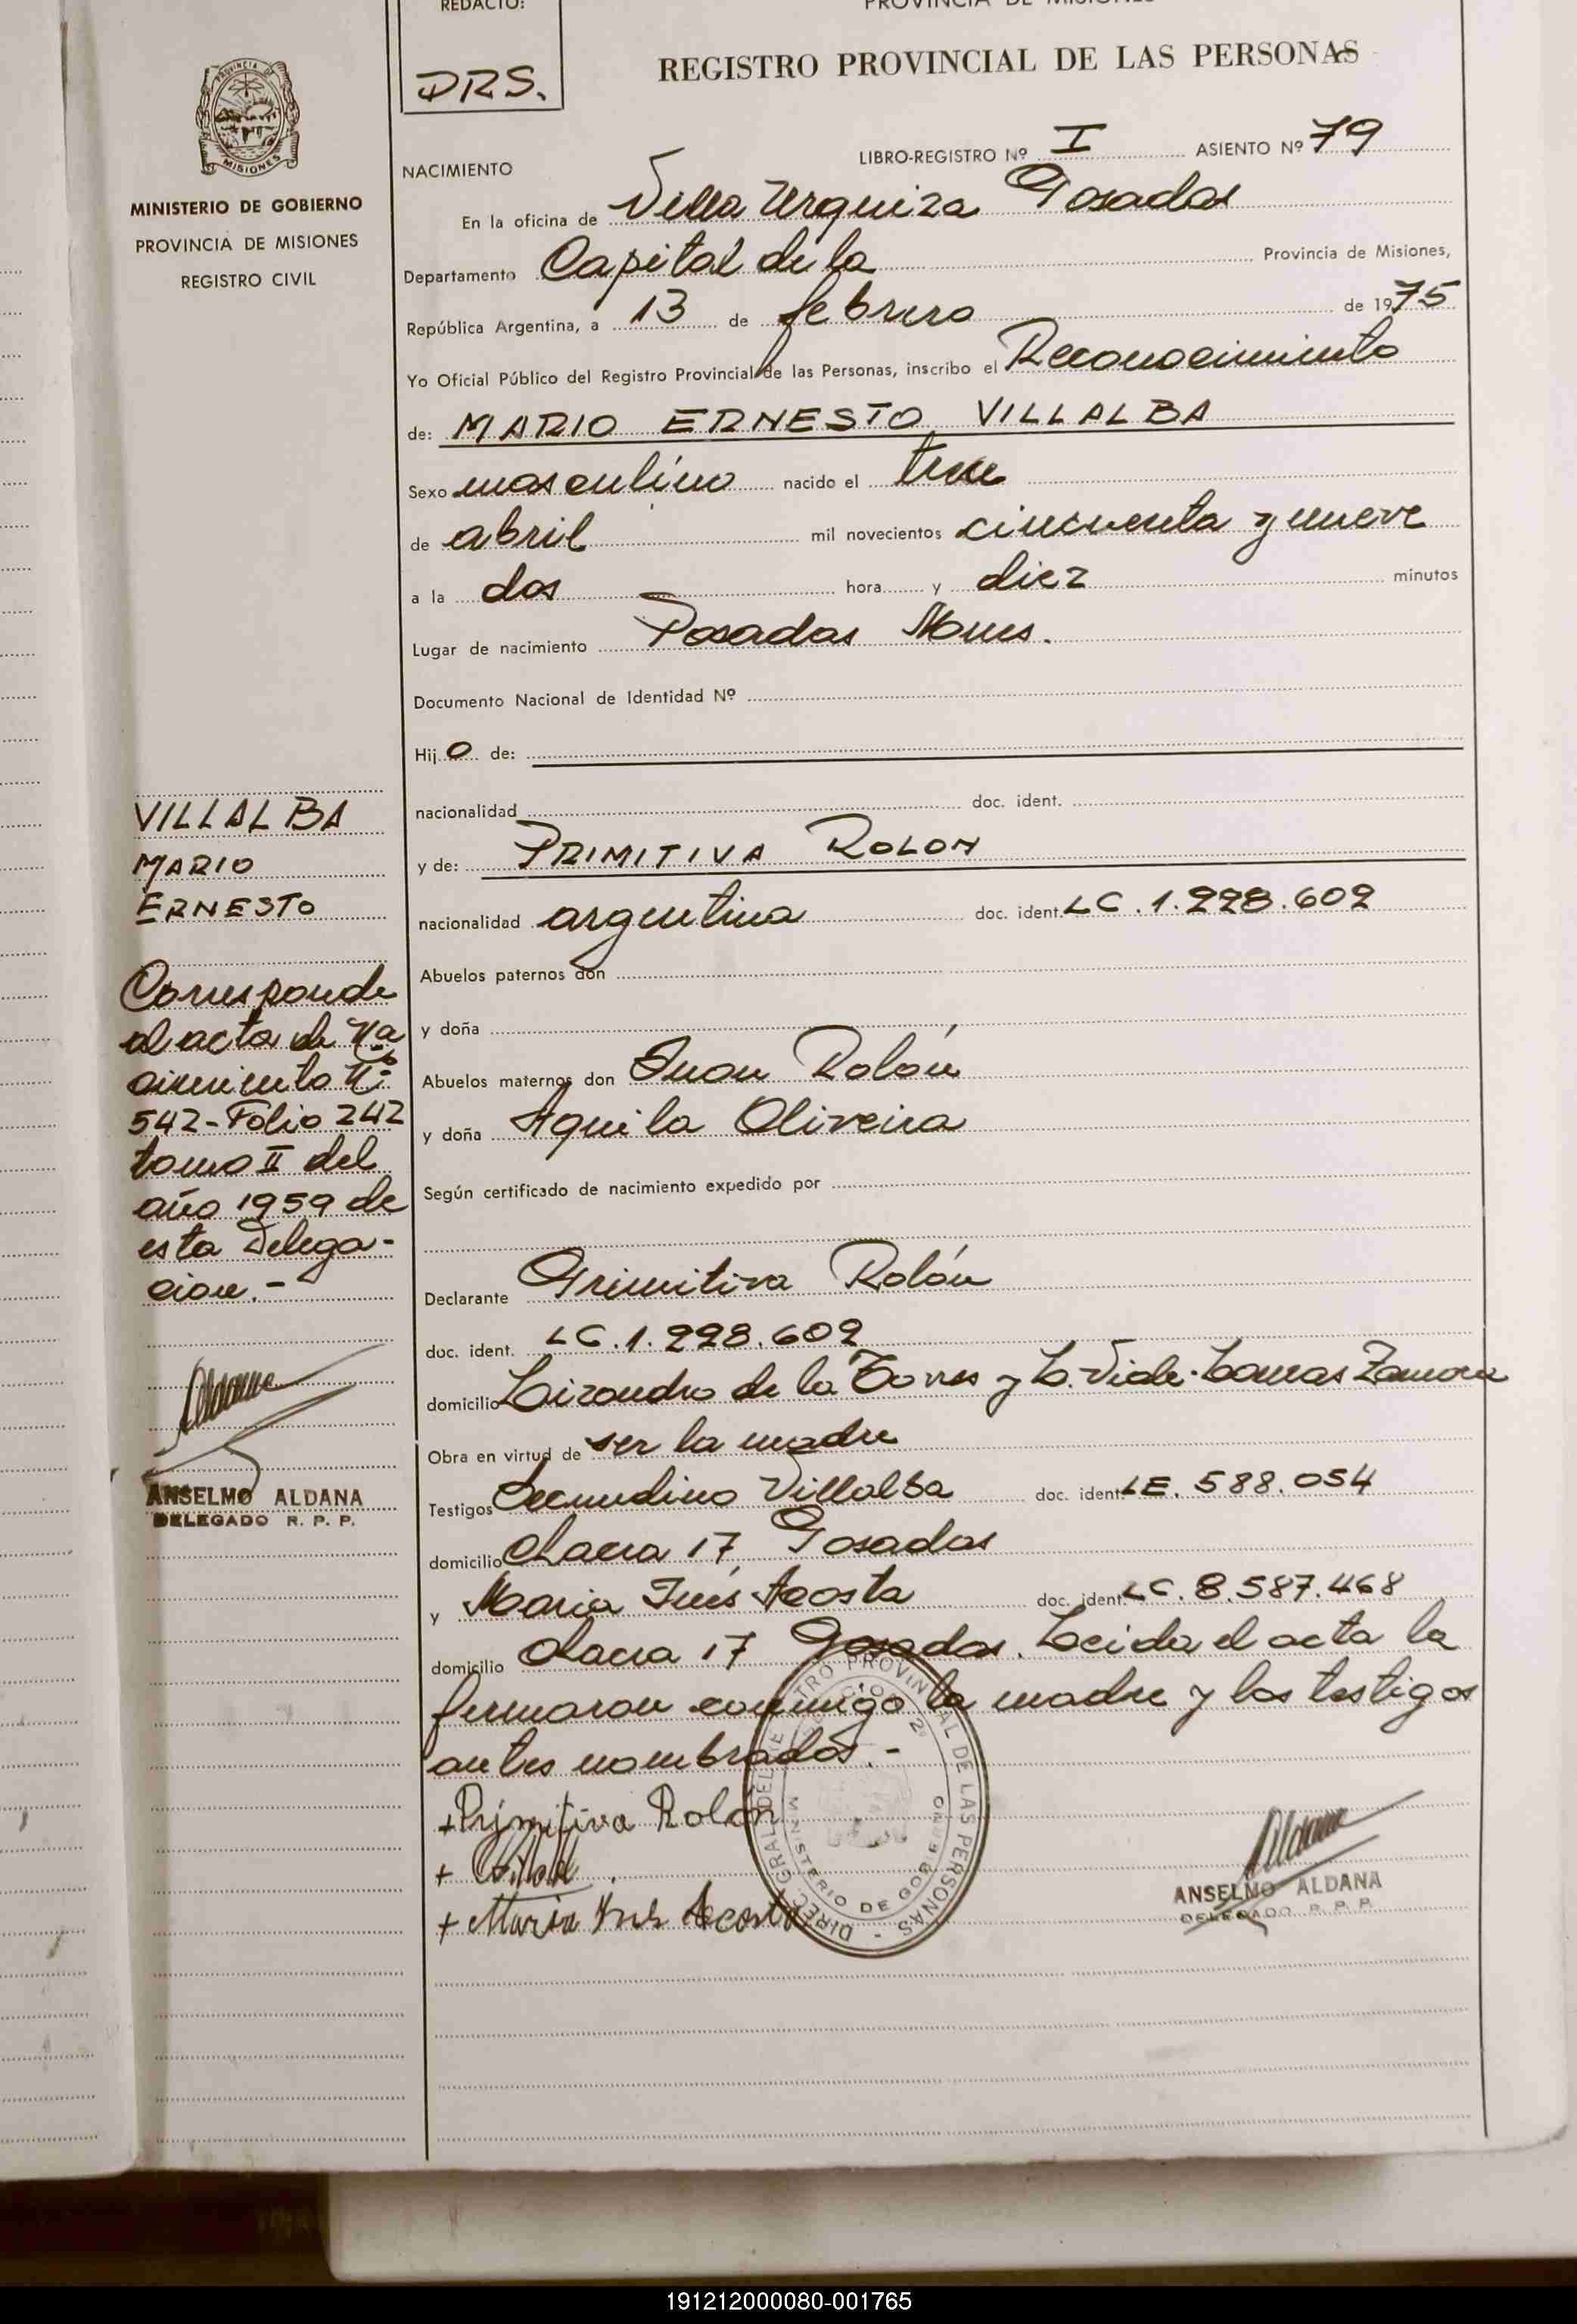 REDACTO:
DRS.
PROVINCIA DE MISIONES
REGISTRO PROVINCIAL DE LAS PERSONAS
PROVINCIA DE
MISIONES
MINISTERIO DE GOBIERNO
PROVINCIA DE MISIONES
REGISTRO CIVIL
NACIMIENTO
LIBRO-REGISTRO Nº I ASIENTO Nº 79
En la oficina de Villa Urquiza Posadas
Departamento Capital de la Provincia de Misiones,
República Argentina, a 13 de febrero de 1975
Yo Oficial Público del Registro Provincial de las Personas, inscribo el Reconocimiento
de: MARIO ERNESTO VILLALBA
Sexo masculino nacido el trece
de abril mil novecientos cincuenta y nueve
a la dos hora y diez minutos
Lugar de nacimiento Posadas Mnes.
Documento Nacional de Identidad Nº
Hijo de:
nacionalidad doc. ident.
y de: PRIMITIVA ROLON
nacionalidad argentina doc. ident. LC. 1.228.602
Abuelos paternos don
y doña
Abuelos maternos don Juan Rolón
y doña Aquila Oliveira
Según certificado de nacimiento expedido por
Declarante Primitiva Rolón
doc. ident. LC. 1.228.602
domicilio Lizandro de la Torres y L. Viale. Lomas Zamora
Obra en virtud de ser la madre
Testigos Secundino Villalba doc. ident LE. 588.054
domicilio Chacra 17 Posadas
y Maria Inés Acosta doc. ident LC. 8.587.468
domicilio Chacra 17 Posadas. Leida el acta la
firmaron conmigo la madre y los testigos
antes nombrados.-
+Primitiva Rolón
+
+ Maria Ines Acosta
DIREC. GRAL. DEL REGISTRO PROVINCIAL DE LAS PERSONAS
MINISTERIO DE GOBIERNO
ANSELMO ALDANA
DELEGADO R. P. P.
VILLALBA
MARIO
ERNESTO
Corresponde
al acta de Na
cimiento Nº
542-Folio 242
tomo II del
año 1959 de
esta Delega-
cion.-
Aldana
ANSELMO ALDANA
DELEGADO R. P. P.
191212000080-001765